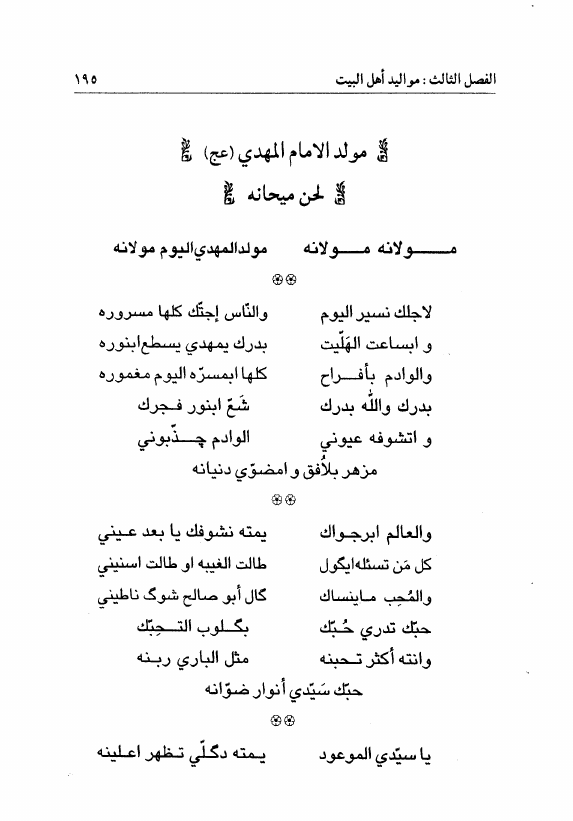 الفصل الثالث : مواليد أهل البيت ١٩٥
مولد الامام المهدي (عج)
لحن ميحانه
مـولانه مـولانه مولد المهدي اليوم مولانه
لاجلك نسير اليوم والنّاس إجتّك كلها مسروره
و ابساعت الهَلّيت بدرك يمهدي يسطع ابنوره
والوادم بأفـراح كلها ابمسرّه اليوم مغموره
بدرك والله بدرك شَعّ ابنور فـجرك
و اتشوفه عيوني الوادم چـذّبوني
مزهر بلاُفق و امضوّي دنيانه
والعالم ابرجـواك يمته نشوفك يا بعد عـيني
كل مَن تسئله ايگول طالت الغيبه او طالت اسنيني
والمُحِب مـاينساك گال أبو صالح شوگ ناطيني
حبّك تدري حُـبّك بگـلوب التـحِبّك
وانته أكثر تـحبنه مثل الباري ربـنه
حبّك سَيّدي أنوار ضوّانه
يا سيّدي الموعود يـمته دگـلّي تـظهر اعـلينه